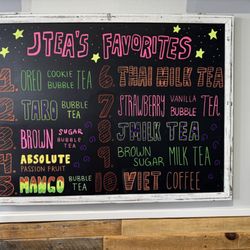 JTEA'S FAVORITES
1. OREO COOKIE BUBBLE TEA
2 TARO BUBBLE TEA
3 BROWN SUGAR BUBBLE TEA
4 ABSOLUTE PASSION FRUIT
5 MANGO BUBBLE TEA
6 THAI MILK TEA
7 STRAWBERRY VANILLA BUBBLE TEA
8 JMILK TEA
9 BROWN SUGAR MILK TEA
10 VIET COFFEE